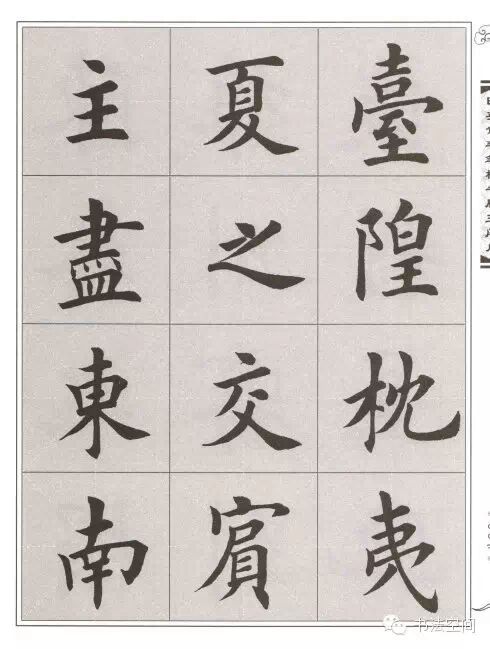 臺隍枕夷
夏之交賔
主盡東南
书法空间